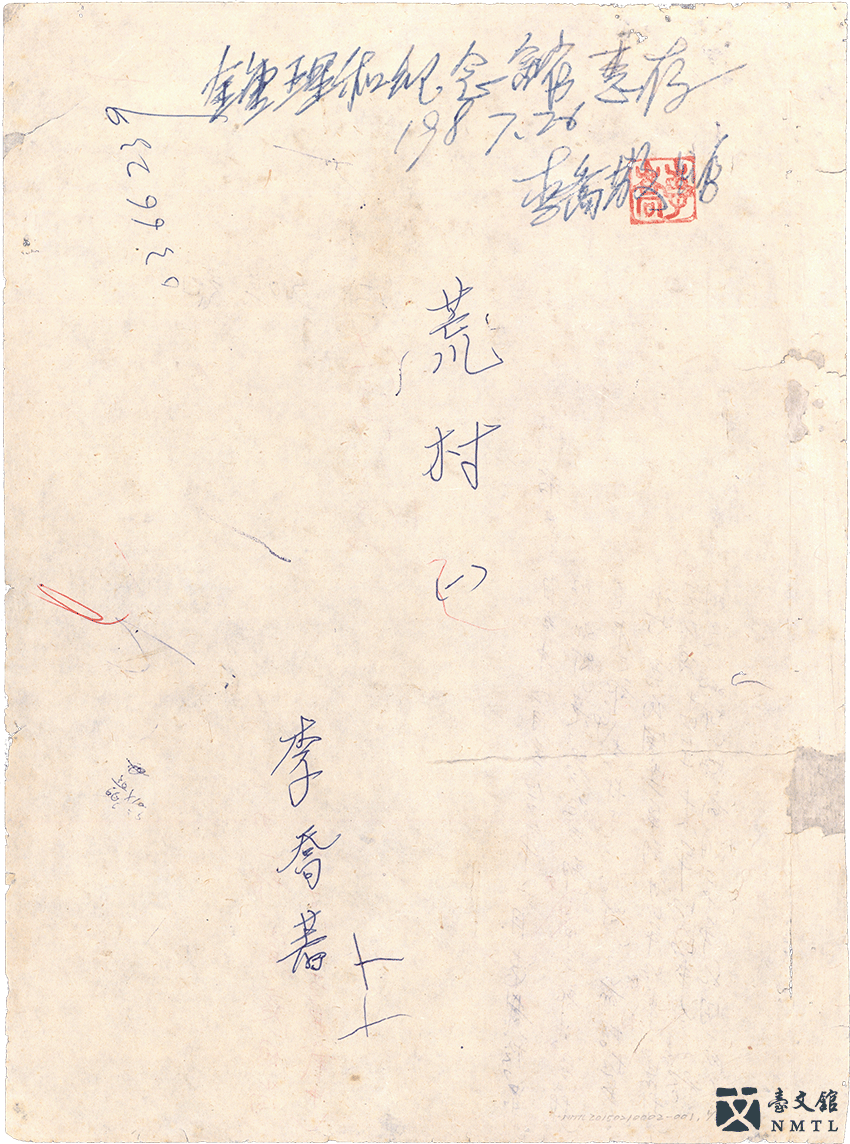 鍾理和紀念館惠存
198 7.26
李喬敬贈
037 66239
荒村
㈠
李喬著
臺文館
NMTL